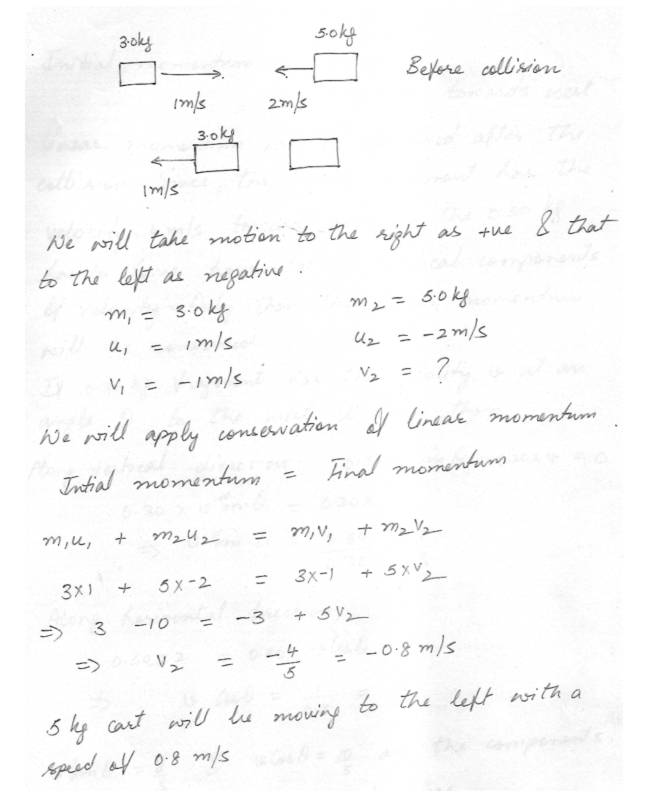 3.0kg 5.0kg
Before collision
1m/s 2m/s
3.0kg
1m/s
We will take motion to the right as +ve & that
to the left as negative.
m₁ = 3.0kg m₂ = 5.0kg
u₁ = 1m/s u₂ = -2m/s
v₁ = -1m/s v₂ = ?
We will apply conservation of linear momentum.
Intial momentum = Final momentum
m₁u₁ + m₂u₂ = m₁v₁ + m₂v₂
3x1 + 5x-2 = 3x-1 + 5xv₂
=> 3 -10 = -3 + 5v₂
=> v₂ = -4/5 = -0.8 m/s
5 kg cart will be moving to the left with a
speed of 0.8 m/s